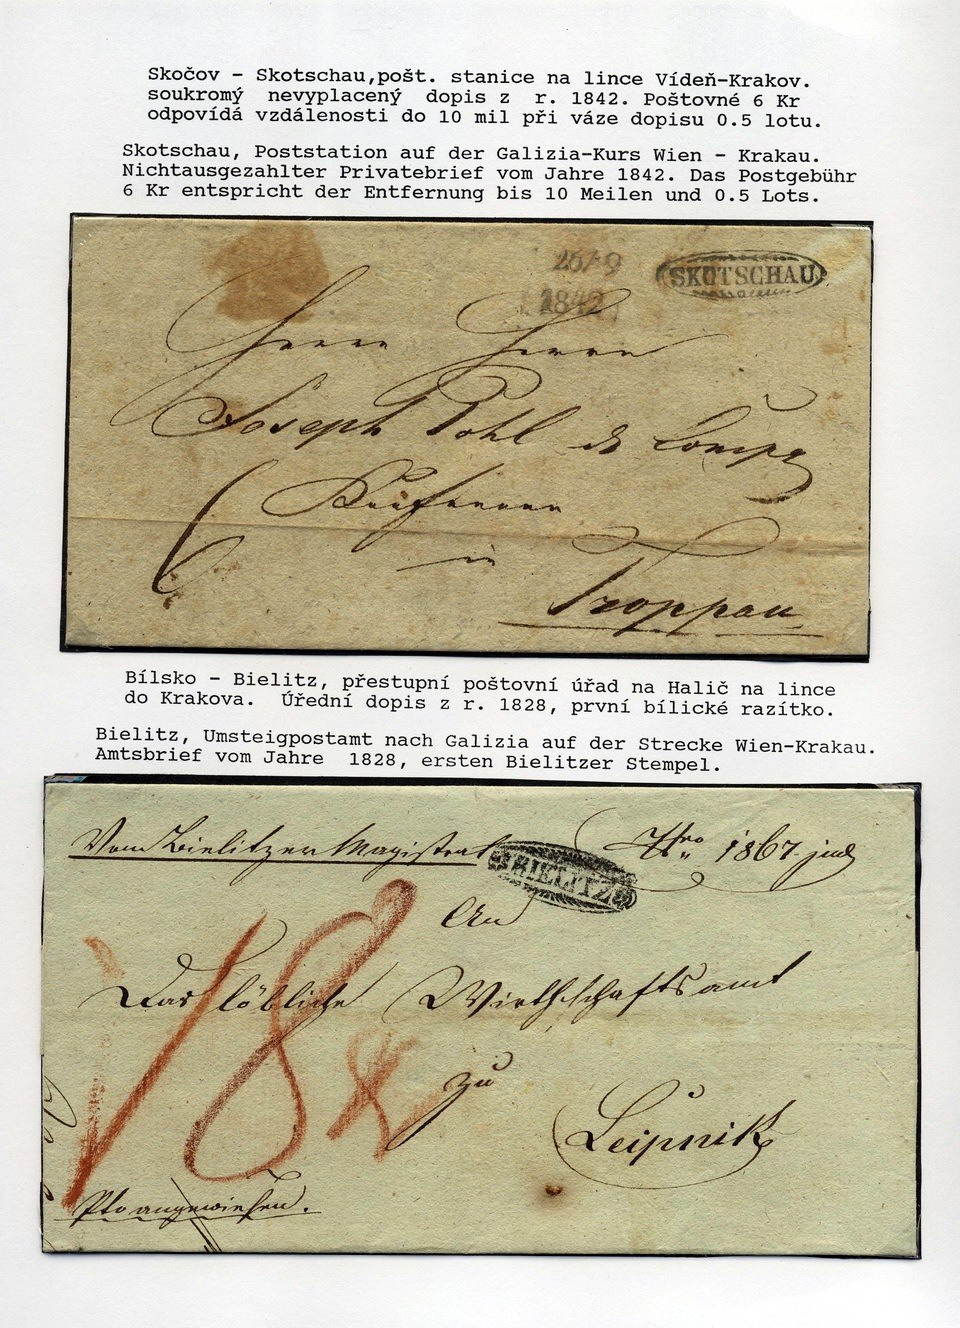 Skočov - Skotschau,pošt. stanice na lince Vídeň-Krakov.
soukromý nevyplacený dopis z r. 1842. Poštovné 6 Kr
odpovídá vzdálenosti do 10 mil při váze dopisu 0.5 lotu.
Skotschau, Poststation auf der Galizia-Kurs Wien - Krakau.
Nichtausgezahlter Privatebrief vom Jahre 1842. Das Postgebühr
6 Kr entspricht der Entfernung bis 10 Meilen und 0.5 Lots.
SKOTSCHAU
1842
Herrn Herrn
Joseph Pohl & Comp
Kaufmann
6
in
Troppau
Bílsko - Bielitz, přestupní poštovní úřad na Halič na lince
do Krakova. Úřední dopis z r. 1828, první bílické razítko.
Bielitz, Umsteigpostamt nach Galizia auf der Strecke Wien-Krakau.
Amtsbrief vom Jahre 1828, ersten Bielitzer Stempel.
Vom Bielitzer Magistrat
BIELITZ
Nro 1867 jud
An
Das löbliche Wirthschaftsamt
18
zu
Leipnik
Pto angewiesen.